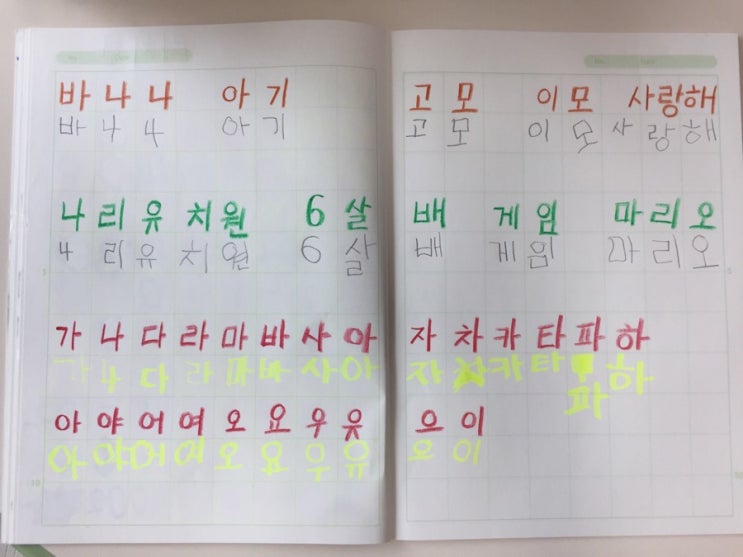 바나나 아기
바나4 아기
나리유치원 6살
4리유치원 6살
가나다라마바사아
가나다라마바사아
아야어여오요우유
아야어여오요우유
고모 이모 사랑해
고모 이모 사랑해
배 게임 마리오
배 게임 마리오
자차카타파하
자차카타 하
파
으이
으이